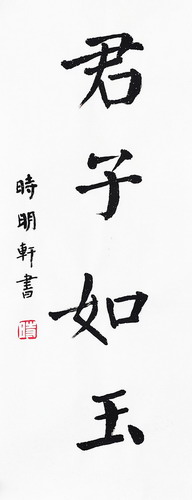 君子如玉
時明軒書